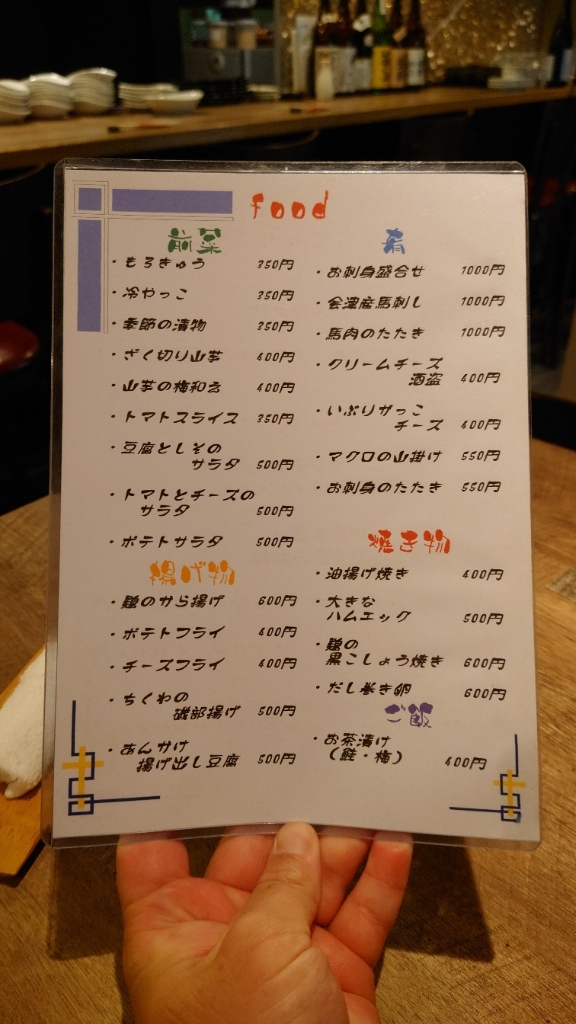 food
前菜
・もろきゅう 350円
・冷やっこ 350円
・季節の漬物 350円
・ざく切り山芋 400円
・山芋の梅和え 400円
・トマトスライス 350円
・豆腐としその
サラダ 500円
・トマトとチーズの
サラダ 500円
・ポテトサラダ 500円
揚げ物
・鶏のから揚げ 600円
・ポテトフライ 400円
・チーズフライ 400円
・ちくわの
磯部揚げ 500円
・あんかけ
揚げ出し豆腐 500円
肴
・お刺身盛合せ 1000円
・会津産馬刺し 1000円
・馬肉のたたき 1000円
・クリームチーズ
酒盗 400円
・いぶりがっこ
チーズ 400円
・マグロの山掛け 550円
・お刺身のたたき 550円
焼き物
・油揚げ焼き 400円
・大きな
ハムエッグ 500円
・鶏の
黒こしょう焼き 600円
・だし巻き卵 600円
ご飯
・お茶漬け
(鮭・梅) 400円